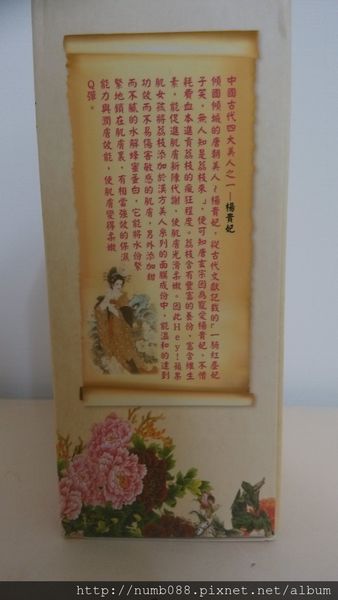 中國古代四大美人之一—楊貴妃
傾國傾城的唐朝美人~楊貴妃,從古代文獻記載的「一騎紅塵妃
子笑,無人知是荔枝來」,便可知唐玄宗因為寵愛楊貴妃,不惜
耗費血本進貢荔枝的瘋狂程度。荔枝含有豐富的養份,富含維生
素,能促進肌膚新陳代謝,使肌膚光滑柔嫩。因此Hey!蘋果
肌女孩將荔枝添加於漢方美人系列的面膜成份中,能溫和的達到
功效而不易傷害敏感的肌膚,另外添加甜
而不膩的水解蜂蜜蛋白,它能將水份緊
緊地鎖在肌膚裏,有相當強效的保濕
能力與潤膚效能,使肌膚變得柔嫩
Q彈。
http://numb088.pixnet.net/album